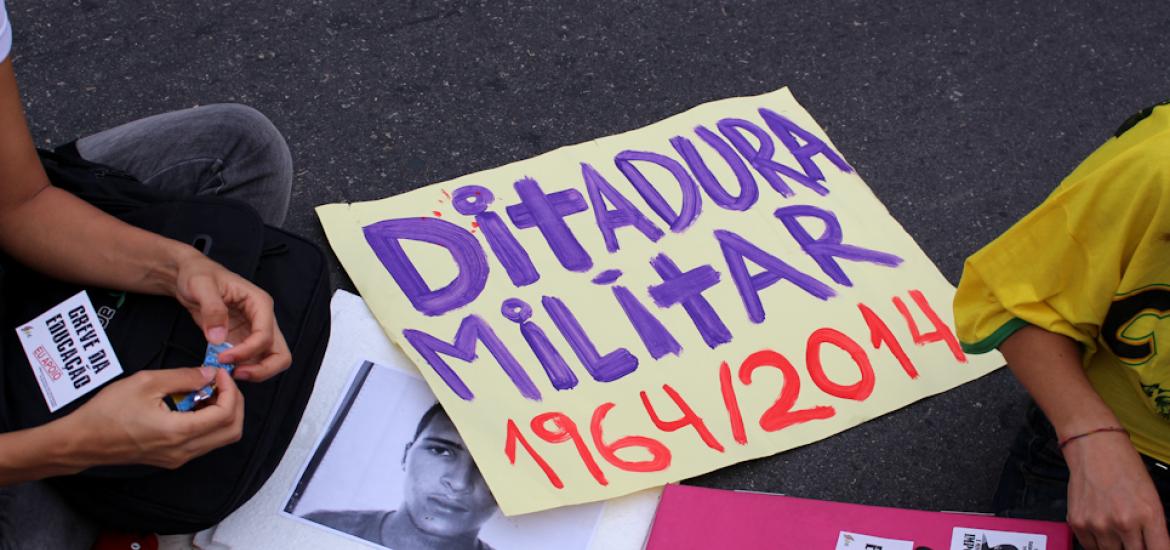 DiTADURA
MiLiTAR
1964/2014
GREVE NA
EDUCAÇÃO
EU APOIO